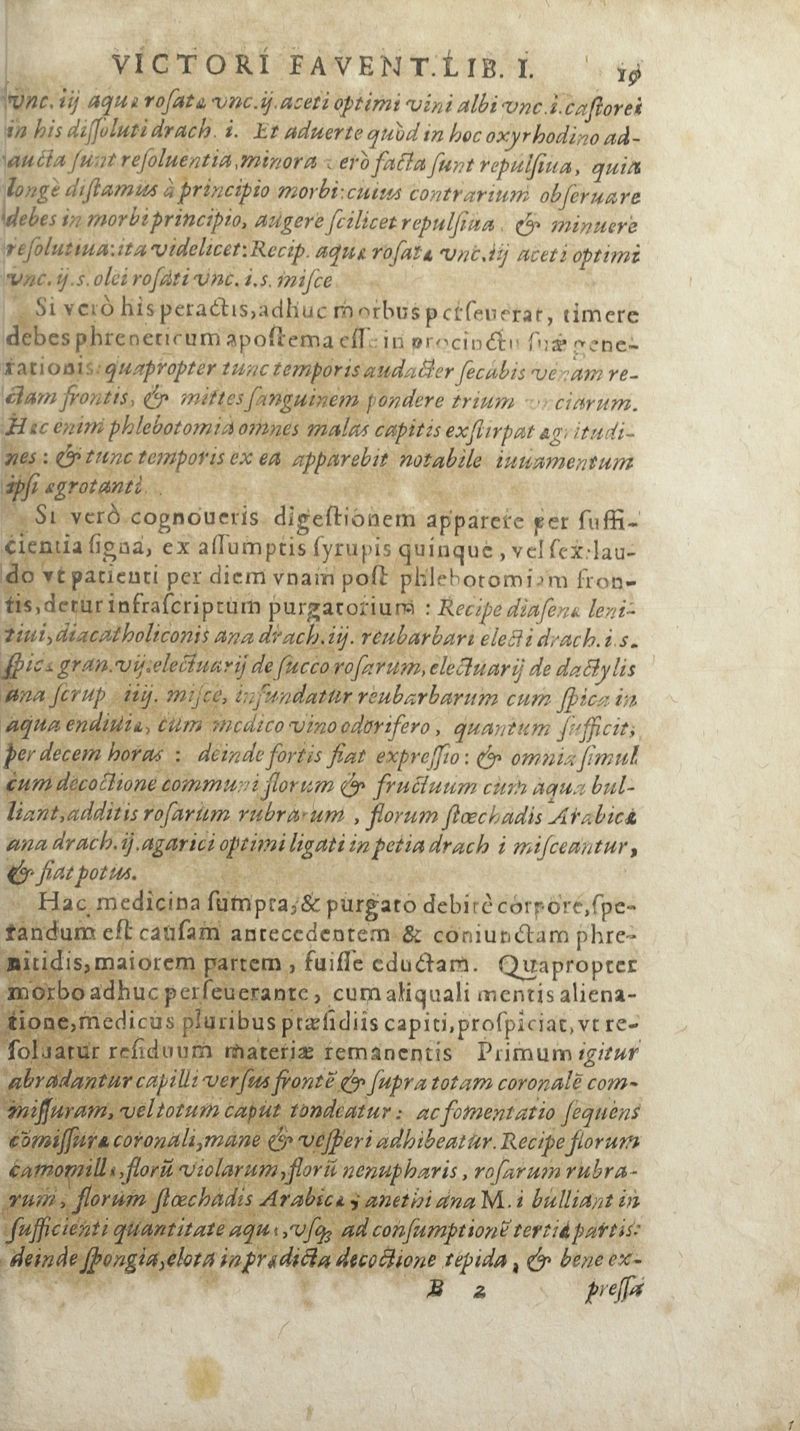 VICTORI FAVENT. LIB. I. 19
vnc. iij aquæ rosatæ vnc.ij.aceti optimi vini albi vnc.i.castorei
in his dissoluti drach. i. Et aduerte quòd in hoc oxyrhodino ad-
aucta sunt resoluentia, minora verò facta sunt repulsiua, quia
longè distamus à principio morbi: cuius contrarium obseruare
debes in morbi principio, augere scilicet repulsiua & minuere
resolutiua: ita videlicet: Recip. aquæ rosatæ vnc.iij aceti optimi
vnc. ij.s. olei rosati vnc. i.s. misce
Si verò his peractis, adhuc morbus perseuerat, timere
debes phreneticum apostema esse in procinctu suæ gene-
rationis: quapropter tunc temporis audacter secabis venam re-
ctam frontis, & mittes sanguinem pondere trium vnciarum.
Hæc enim phlebotomia omnes malas capitis exstirpat ægritudi-
nes: & tunc temporis ex ea apparebit notabile iuuamentum
ipsi ægrotanti.
Si verò cognoueris digestionem apparere per suffi-
cientia signa, ex assumptis syrupis quinque, vel sex: lau-
do vt patienti per diem vnam post phlebotomiam fron-
tis, detur infrascriptum purgatorium: Recipe diasenæ leni-
tiui, diacatholiconis ana drach.iij. reubarbari electi drach.i.s.
spicæ gran.vij. electuarij de succo rosarum, electuarij de dactylis
ana scrup iiij. misce, infundatur reubarbarum cum spica in
aqua endiuiæ, cum medico vino odorifero, quantum sufficit,
per decem horas: deinde fortis fiat expressio: & omnia simul
cum decoctione communi florum & fructuum cum aqua bul-
liant, additis rosarum rubrarum, florum stœchadis Arabicæ
ana drach.ij. agarici optimi ligati in petia drach i misceantur,
& fiat potus.
Hac medicina sumpta, & purgato debitè corpore, spe-
randum est causam antecedentem & coniunctam phre-
nitidis, maiorem partem, fuisse eductam. Quapropter
morbo adhuc perseuerante, cum aliquali mentis aliena-
tione, medicus pluribus præsidiis capiti, prospiciat, vt re-
soluatur residuum materiæ remanentis Primum igitur
abradantur capilli versus frontē & supra totam coronalē com-
missuram, vel totum caput tondeatur: ac fomentatio sequens
cōmissuræ coronali, mane & vesperi adhibeatur. Recipe florum
camomillæ, florū violarum, florū nenupharis, rosarum rubra-
rum, florum stœchadis Arabicæ, anethi ana M. i bulliant in
sufficienti quantitate aquæ, vsq; ad consumptionē tertiæ partis:
deinde spongia, elota in prædicta decoctione tepida, & bene ex-
B 2 pressa